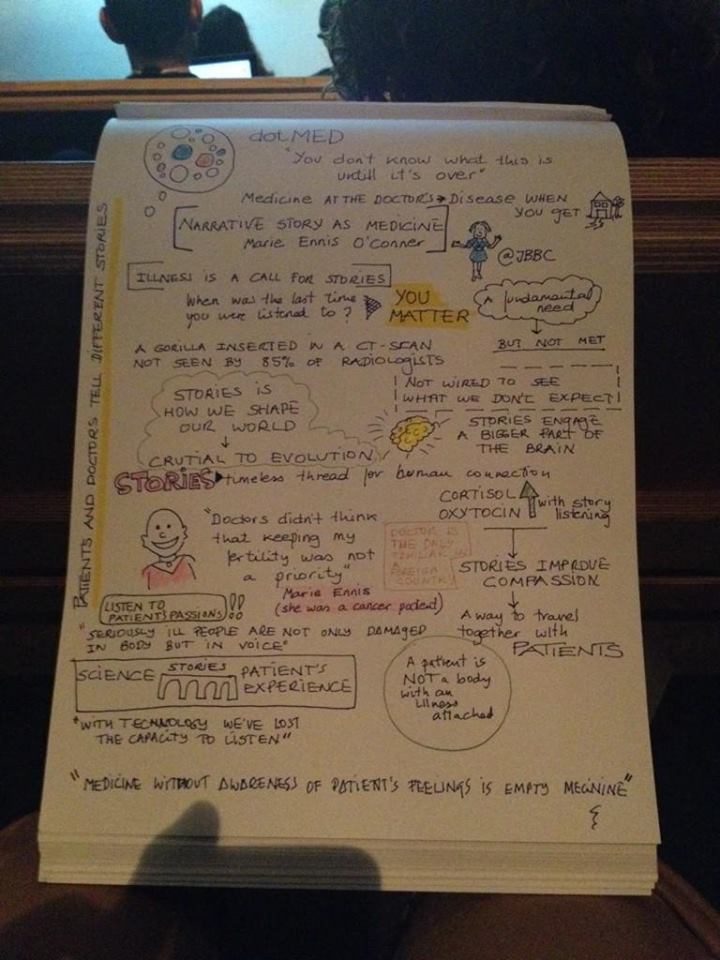 dotMED
"You don't know what this is
untill it's over"
Medicine AT THE DOCTOR'S → Disease WHEN
YOU GET
NARRATIVE STORY AS MEDICINE
Marie Ennis O'Conner
@JBBC
PATIENTS AND DOCTORS TELL DIFFERENT STORIES
ILLNESS IS A CALL FOR STORIES
When was the last time
you were listened to?
YOU
MATTER
A fundamental
need
BUT NOT MET
A GORILLA INSERTED IN A CT-SCAN
NOT SEEN BY 85% OF RADIOLOGISTS
NOT WIRED TO SEE
WHAT WE DON'T EXPECT!
STORIES IS
HOW WE SHAPE
OUR WORLD
CRUTIAL TO EVOLUTION
STORIES ENGAGE
A BIGGER PART OF
THE BRAIN
STORIES timeless thread for human connection
CORTISOL
OXYTOCIN
with story
listening
"Doctors didn't think
that keeping my
fertility was not
a priority"
Marie Ennis
(she was a cancer patient)
DOCTOR IS
THE ONLY
IN
FOREIGN
COUNTRY
STORIES IMPROVE
COMPASSION
A way to travel
together with
PATIENTS
LISTEN TO
PATIENT'S PASSIONS!
!!
"SERIOUSLY ILL PEOPLE ARE NOT ONLY DAMAGED
IN BODY BUT IN VOICE"
SCIENCE
STORIES
PATIENT'S
EXPERIENCE
A patient is
NOT a body
with an
illness
attached
"WITH TECHNOLOGY WE'VE LOST
THE CAPACITY TO LISTEN"
"MEDICINE WITHOUT AWARENESS OF PATIENT'S FEELINGS IS EMPTY MECININE"